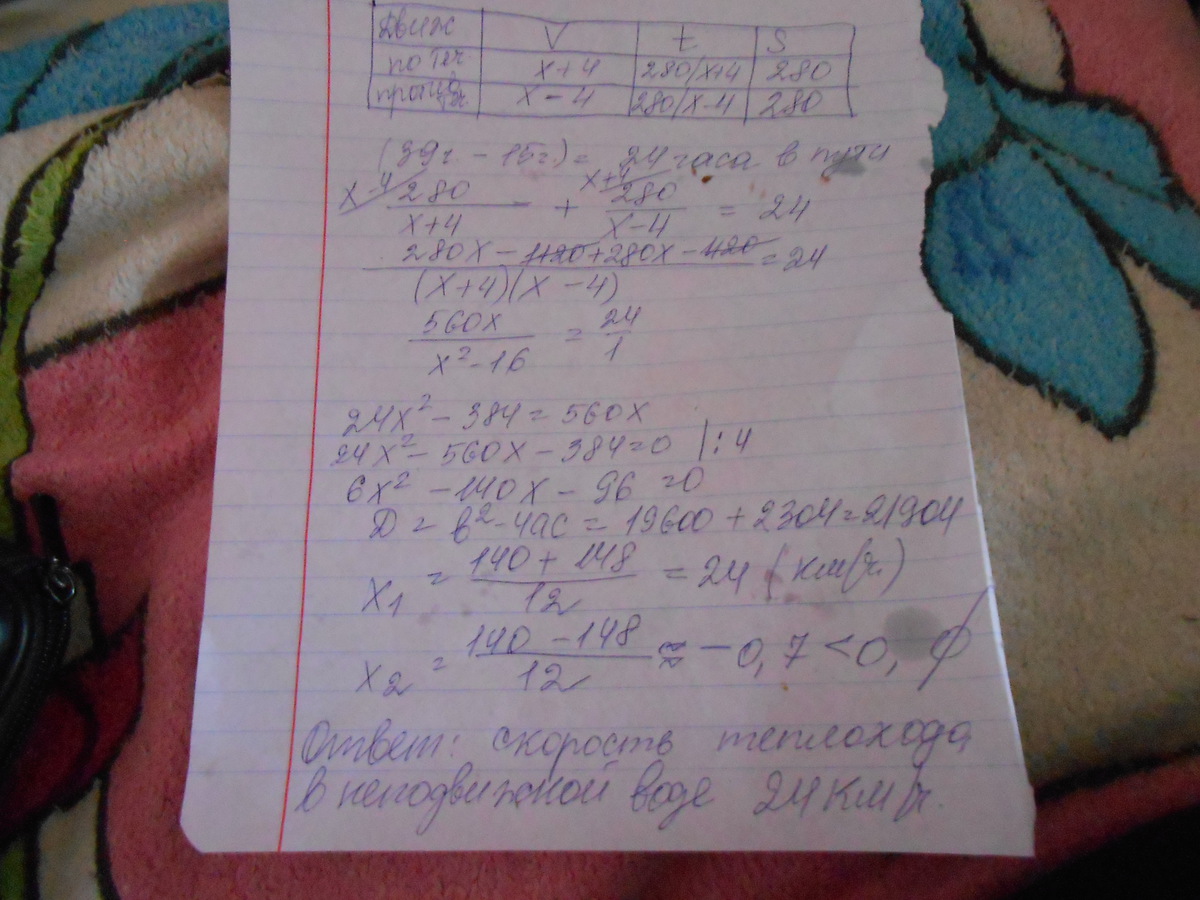 Движ V t S
по теч x+4 280/x+4 280
против теч x-4 280/x-4 280
(39ч - 15ч) = 24 часа в пути
x-4 280/x+4 + x+4 280/x-4 = 24
280x - 1120 + 280x - 1120 / (x+4)(x-4) = 24
560x / x²-16 = 24/1
24x² - 384 = 560x
24x² - 560x - 384 = 0 |:4
6x² - 140x - 96 = 0
D = в² - 4ac = 19600 + 2304 = 21904
x₁ = 140 + 148 / 12 = 24 (км/ч)
x₂ = 140 - 148 / 12 ≈ -0,7 < 0, ∅
Ответ: скорость теплохода
в неподвижной воде 24 км/ч.